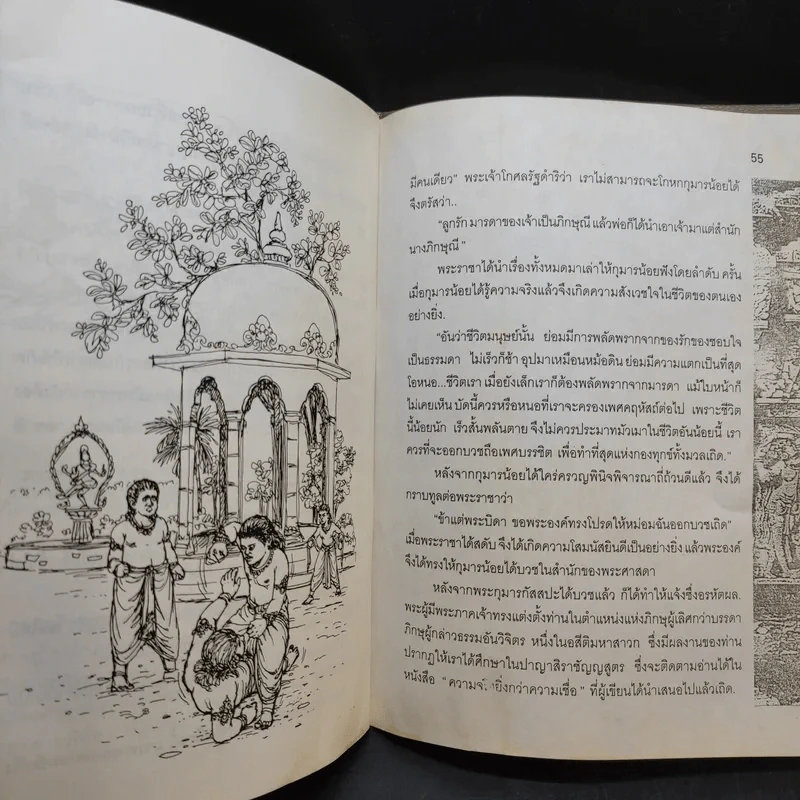 55
มีคนเดียว" พระเจ้าโกศลรัฐดำริว่า เราไม่สามารถจะโกหกกุมารน้อยได้
จึงตรัสว่า..
"ลูกรัก มารดาของเจ้าเป็นภิกษุณี แล้วพ่อก็ได้นำเอาเจ้ามาแต่สำนัก
นางภิกษุณี"
พระราชาได้นำเรื่องทั้งหมดมาเล่าให้กุมารน้อยฟังโดยลำดับ ครั้น
เมื่อกุมารน้อยได้รู้ความจริงแล้วจึงเกิดความสังเวชใจในชีวิตของตนเอง
อย่างยิ่ง.
"อันว่าชีวิตมนุษย์นั้น ย่อมมีการพลัดพรากจากของรักของชอบใจ
เป็นธรรมดา ไม่เร็วก็ช้า อุปมาเหมือนหม้อดิน ย่อมมีความแตกเป็นที่สุด
โอหนอ...ชีวิตเรา เมื่อยังเล็กเราก็ต้องพลัดพรากจากมารดา แม้ใบหน้าก็
ไม่เคยเห็น บัดนี้ควรหรือหนอที่เราจะครองเพศคฤหัสถ์ต่อไป เพราะชีวิต
นี้น้อยนัก เร็วสั้นพลันตาย จึงไม่ควรประมาทมัวเมาในชีวิตอันน้อยนี้ เรา
ควรที่จะออกบวชถือเพศบรรชิต เพื่อทำที่สุดแห่งกองทุกข์ทั้งมวลเถิด."
หลังจากกุมารน้อยได้ใคร่ครวญพินิจพิจารณาถี่ถ้วนดีแล้ว จึงได้
กราบทูลต่อพระราชาว่า
"ข้าแต่พระบิดา ขอพระองค์ทรงโปรดให้หม่อมฉันออกบวชเถิด"
เมื่อพระราชาได้สดับ จึงได้เกิดความโสมนัสยินดีเป็นอย่างยิ่ง แล้วพระองค์
จึงได้ทรงให้กุมารน้อยได้บวชในสำนักของพระศาสดา
หลังจากพระกุมารกัสสปะได้บวชแล้ว ก็ได้ทำให้แจ้งซึ่งอรหัตผล.
พระผู้มีพระภาคเจ้าทรงแต่งตั้งท่านในตำแหน่งแห่งภิกษุผู้เลิศกว่าบรรดา
ภิกษุผู้กล่าวธรรมอันวิจิตร หนึ่งในอสีติมหาสาวก ซึ่งมีผลงานของท่าน
ปรากฏให้เราได้ศึกษาในปายาสิราชัญญสูตร ซึ่งจะติดตามอ่านได้ใน
หนังสือ "ความจริงยิ่งกว่าความเชื่อ" ที่ผู้เขียนได้นำเสนอไปแล้วเถิด.